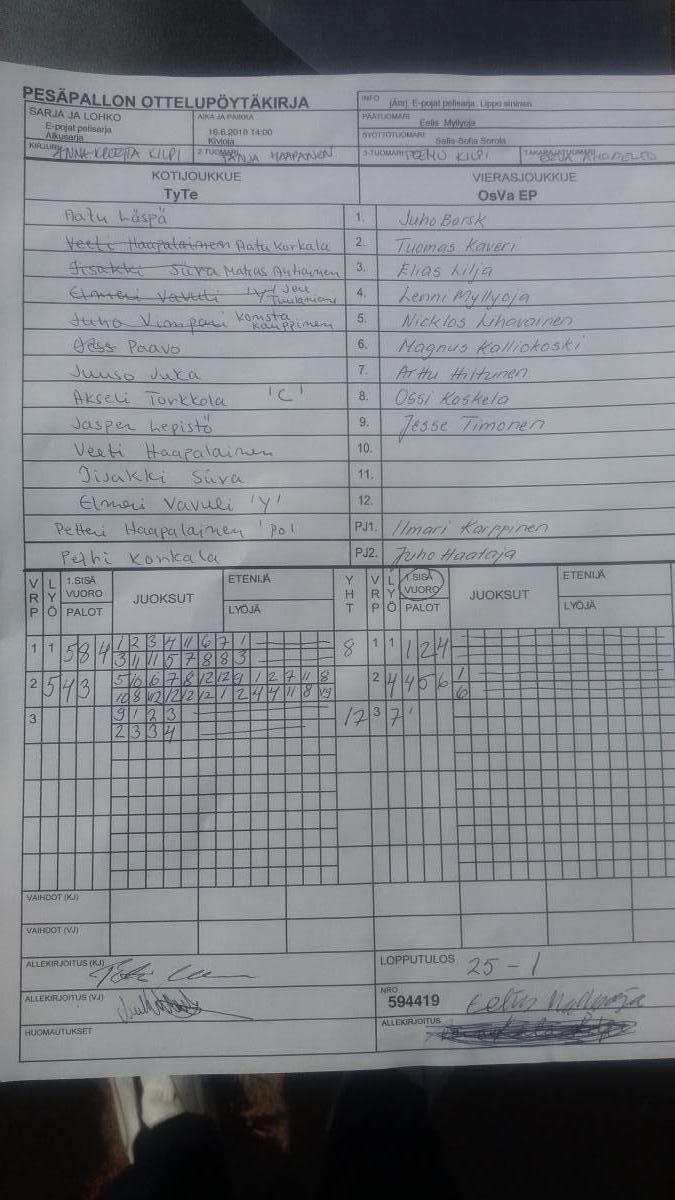 PESÄPALLON OTTELUPÖYTÄKIRJA
INFO (Änrj. E-pojat pelisarja. Lippo sininen
SARJA JA LOHKO
E-pojat pelisarja
Alkusarja
AIKA JA PAIKKA
16.6.2018 14:00
Kivioja
PÄÄTUOMARI
Eelis Myllyoja
SYÖTTÖTUOMARI
Salla-Sofia Sorola
KIRJURI ANNA-KREETTA KILPI
2-TUOMARI TANJA HAAPANEN
3-TUOMARI TEEMU KILPI
TAKARAJATUOMARI
KOTIJOUKKUE
TyTe
VIERASJOUKKUE
OsVa EP
Aatu Läspä 1. Juho Borsk
Veeti Haapalainen Aatu Korkala 2. Tuomas Kaveri
Iisakki Siira Matias Anhainen 3. Elias Lilja
Elmeri Vavuli 'Y' 4. Lenni Myllyoja
Juho Komsta Kauppinen 5. Nicklos Lihavainen
Paavo 6. Magnus Kalliokoski
Juuso Juka 7. Arttu Hiltunen
Akseli Torkkola 'C' 8. Ossi Koskela
Jasper Lepistö 9. Jesse Timonen
Veeti Haapalainen 10.
Iisakki Siira 11.
Elmeri Vavuli 'Y' 12.
Petteri Haapalainen 'PO' PJ1. Ilmari Karppinen
Petri Korkala PJ2. Juho Haataja
VRP LYÖ 1.SISÄ VUORO PALOT JUOKSUT ETENIJÄ LYÖJÄ YHT VRP LYÖ 1.SISÄ VUORO PALOT JUOKSUT ETENIJÄ LYÖJÄ
1 1 5 8 4 1 2 3 4 11 6 7 1 8 1 1 1 2 4
3 11 11 5 7 8 8 3
2 5 4 3 5 10 6 7 8 12 12 9 1 2 7 11 8 2 4 4 5 6 1
10 8 12 12 12 12 1 2 4 4 11 8 6
3 9 1 2 3 17 3 7
2 3 3 4
VAIHDOT (KJ)
VAIHDOT (VJ)
ALLEKIRJOITUS (KJ)
LOPPUTULOS 25 - 1
ALLEKIRJOITUS (VJ)
NRO
594419 Eelis Myllyoja
HUOMAUTUKSET
ALLEKIRJOITUS